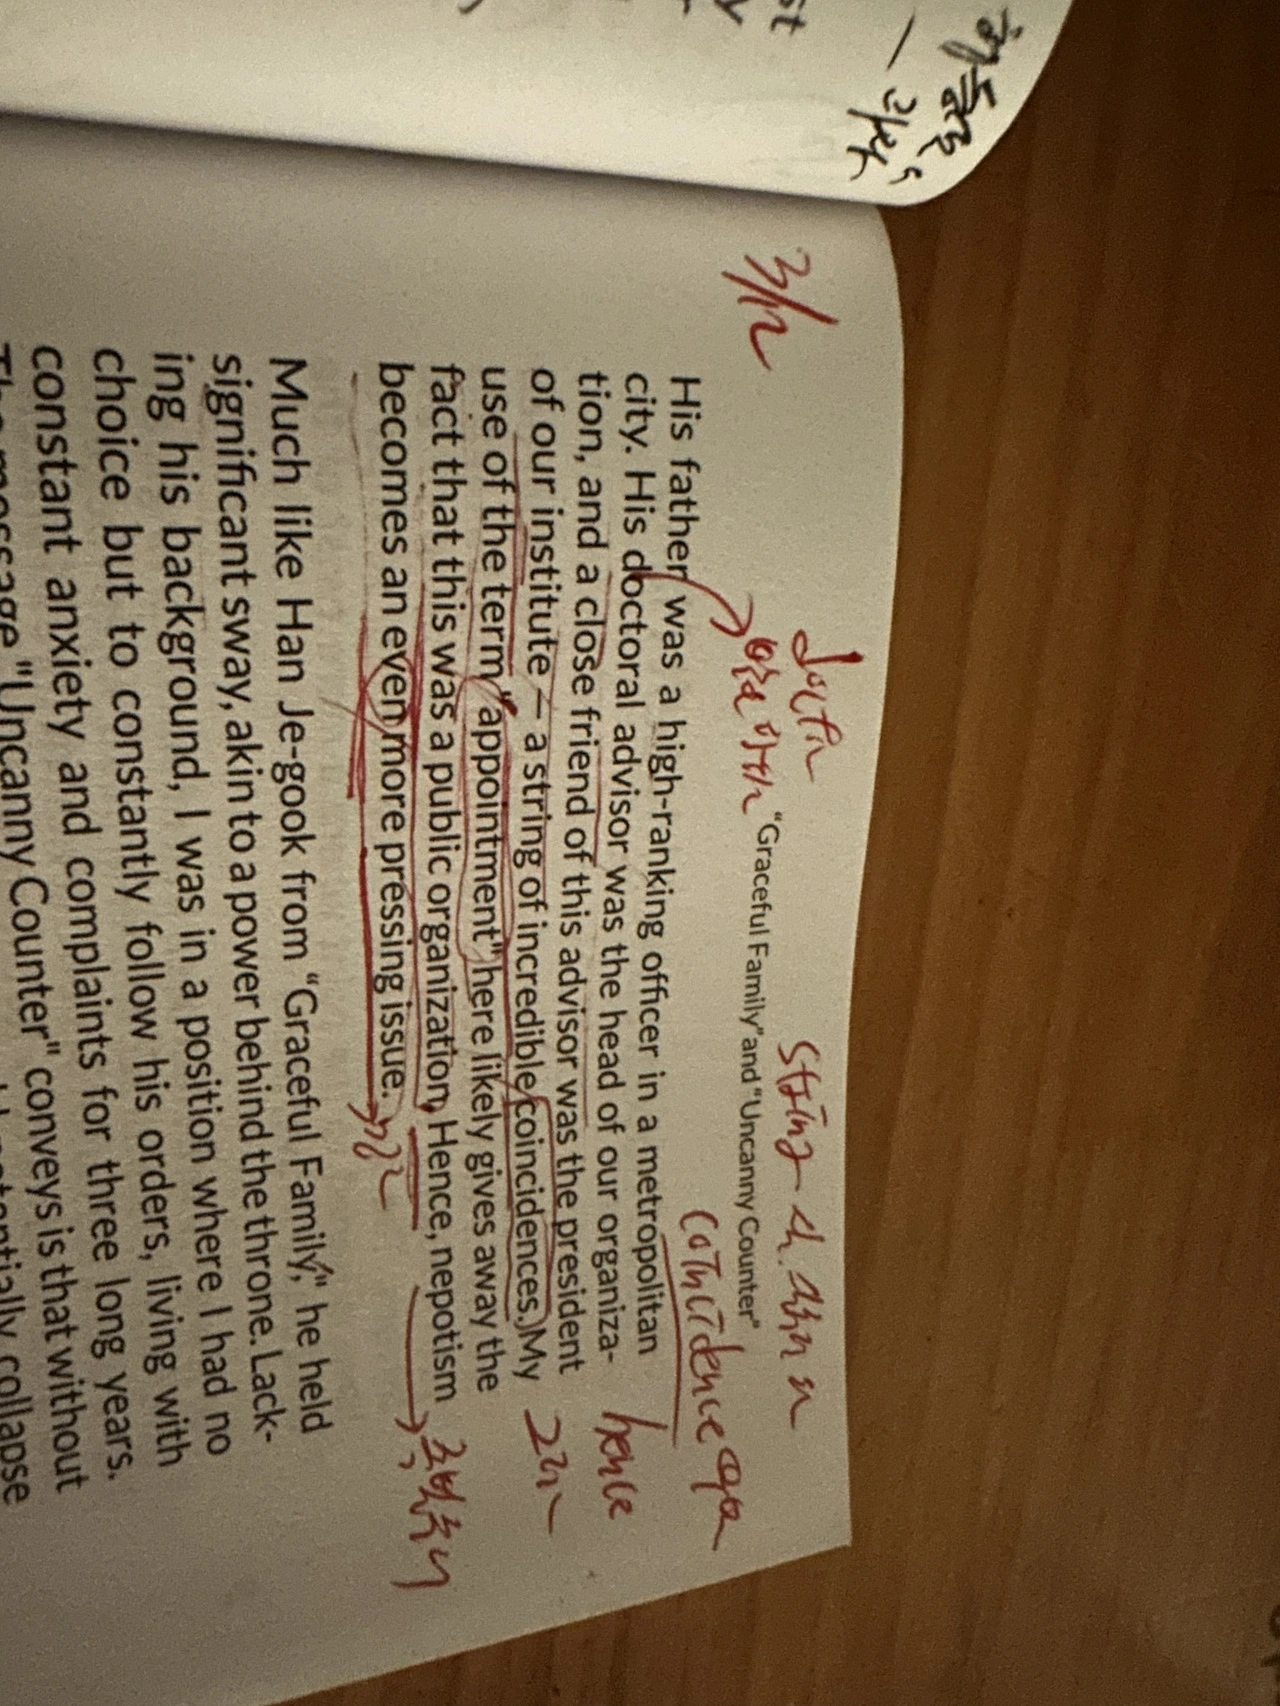 3/12
string
coincidence 우연
"Graceful Family" and "Uncanny Counter"
His father was a high-ranking officer in a metropolitan
city. His doctoral advisor was the head of our organiza-
hence
tion, and a close friend of this advisor was the president
of our institute – a string of incredible coincidences. My
use of the term "appointment" here likely gives away the
fact that this was a public organization, Hence, nepotism
becomes an even more pressing issue.
Much like Han Je-gook from "Graceful Family," he held
significant sway, akin to a power behind the throne. Lack-
ing his background, I was in a position where I had no
choice but to constantly follow his orders, living with
constant anxiety and complaints for three long years.
"Uncanny Counter" conveys is that without
collapse